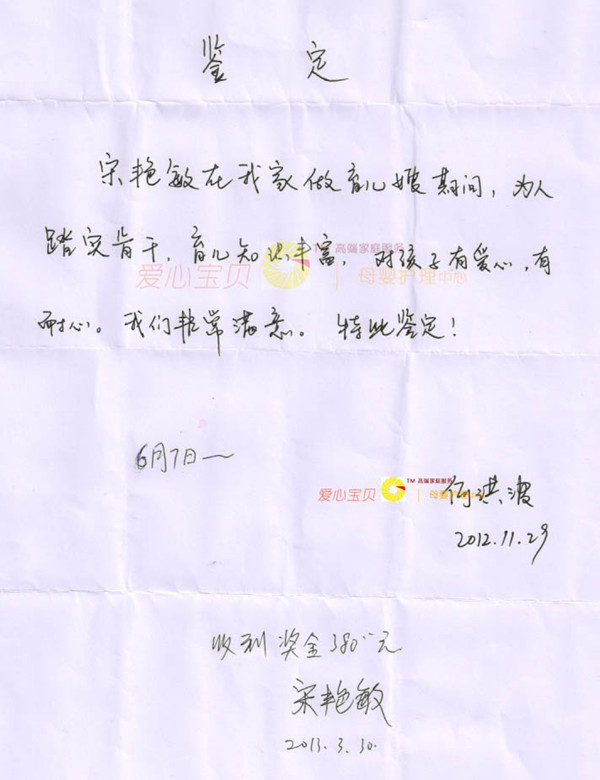 鉴 定
宋艳敏在我家做育儿嫂期间，为人
踏实肯干，育儿知识丰富，对孩子有爱心，有
耐心。我们非常满意。特此鉴定！
爱心宝贝 TM 高端家庭服务
母婴护理中心
6月7日～
爱心宝贝 TM 高端家庭服务
母婴护理中心
何洪波
2012.11.29
收到奖金380元
宋艳敏
2013.3.30.